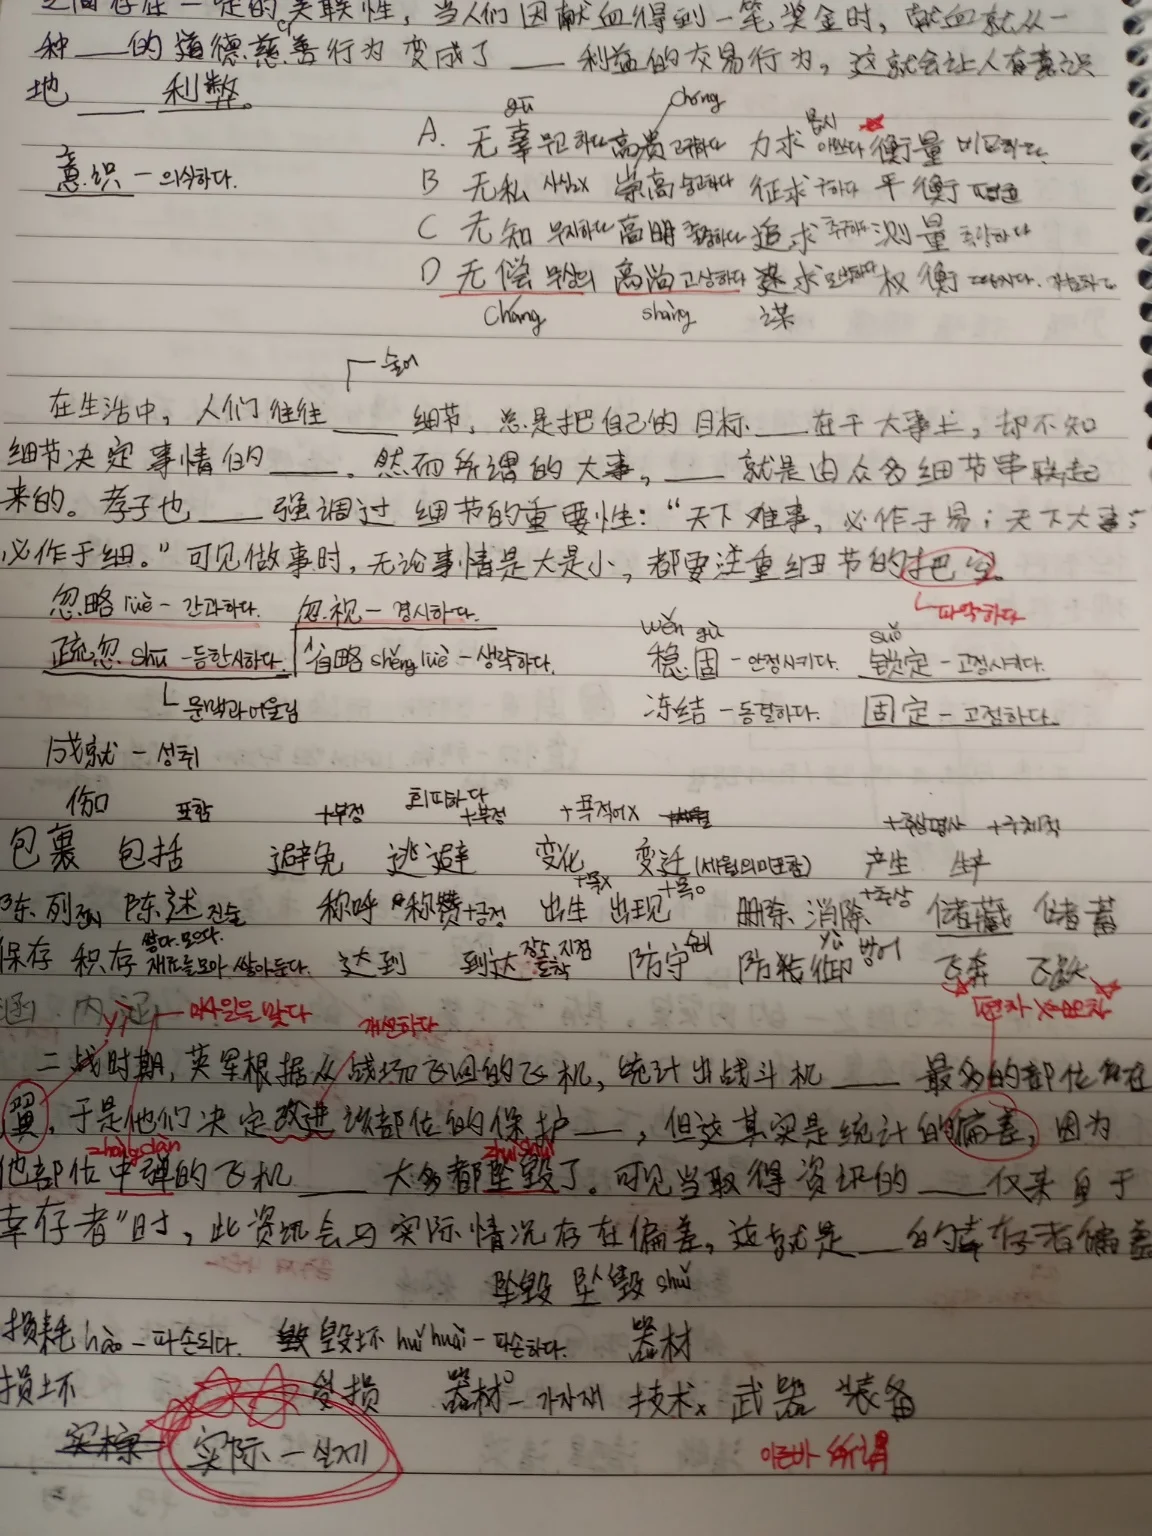 之间存在一定的关联性，当人们因献血得到一笔奖金时，献血就从一
种____的道德慈善行为变成了____利益的交易行为，这就会让人有意识
地____利弊。
gū
chóng
A. 无辜 高贵 고귀하다 力求 衡量
意识 - 의식하다.
B 无私 崇高 숭고하다 征求 구하다 平衡
C 无知 무지하다 高明 追求 추구하다 测量 측량하다
D 无偿 무상의 高尚 고상하다 求 权衡
cháng shàng 谋
在生活中，人们往往____细节，总是把自己的目标____在干大事上，却不知
细节决定事情的____。然而所谓的大事，____就是由众多细节串联起
来的。孝子也____强调过细节的重要性：“天下难事，必作于易；天下大事；
必作于细。”可见做事时，无论事情是大是小，都要注重细节的把
파악하다
忽略 lüè - 간과하다. 忽视 - 경시하다.
wěn gù suǒ
疏忽 shū - 등한시하다. 省略 shěng lüè - 생략하다. 稳固 - 안정시키다. 锁定 - 고정시키다.
문맥과 어울림 冻结 - 동결하다. 固定 - 고정하다.
成就 - 성취
포함 +부정 회피하다 +부정 +목적어X +추상명사 +구체적
包裹 包括 避免 逃避 变化 变迁 (세월의미포함) 产生 生产
陈列 陈述 진술 称呼 称赞 +긍정 出生 出现 删除 消除 +추상 储藏 储蓄
保存 积存 达到 到达 防守 수비 防御 방어 飞奔 飞跃
개선하다
二战时期，英军根据从战场飞回的飞机，统计出战斗机____最多的部位
翼，于是他们决定改进该部位的保护____，但这其实是统计的偏差，因为
zhòng dàn zhuì huǐ
他部位中弹的飞机____大多都坠毁了。可见当取得资讯的____仅来自于
幸存者”时，此资讯会与实际情况存在偏差，这就是____的幸存者偏差
坠毁 坠毁
损耗 hào - 파손되다. 毁坏 huǐ huài - 파손하다. 器材
损坏 受损 器材 - 기자재 技术x 武器 装备
实际 - 실제 이른바 所谓